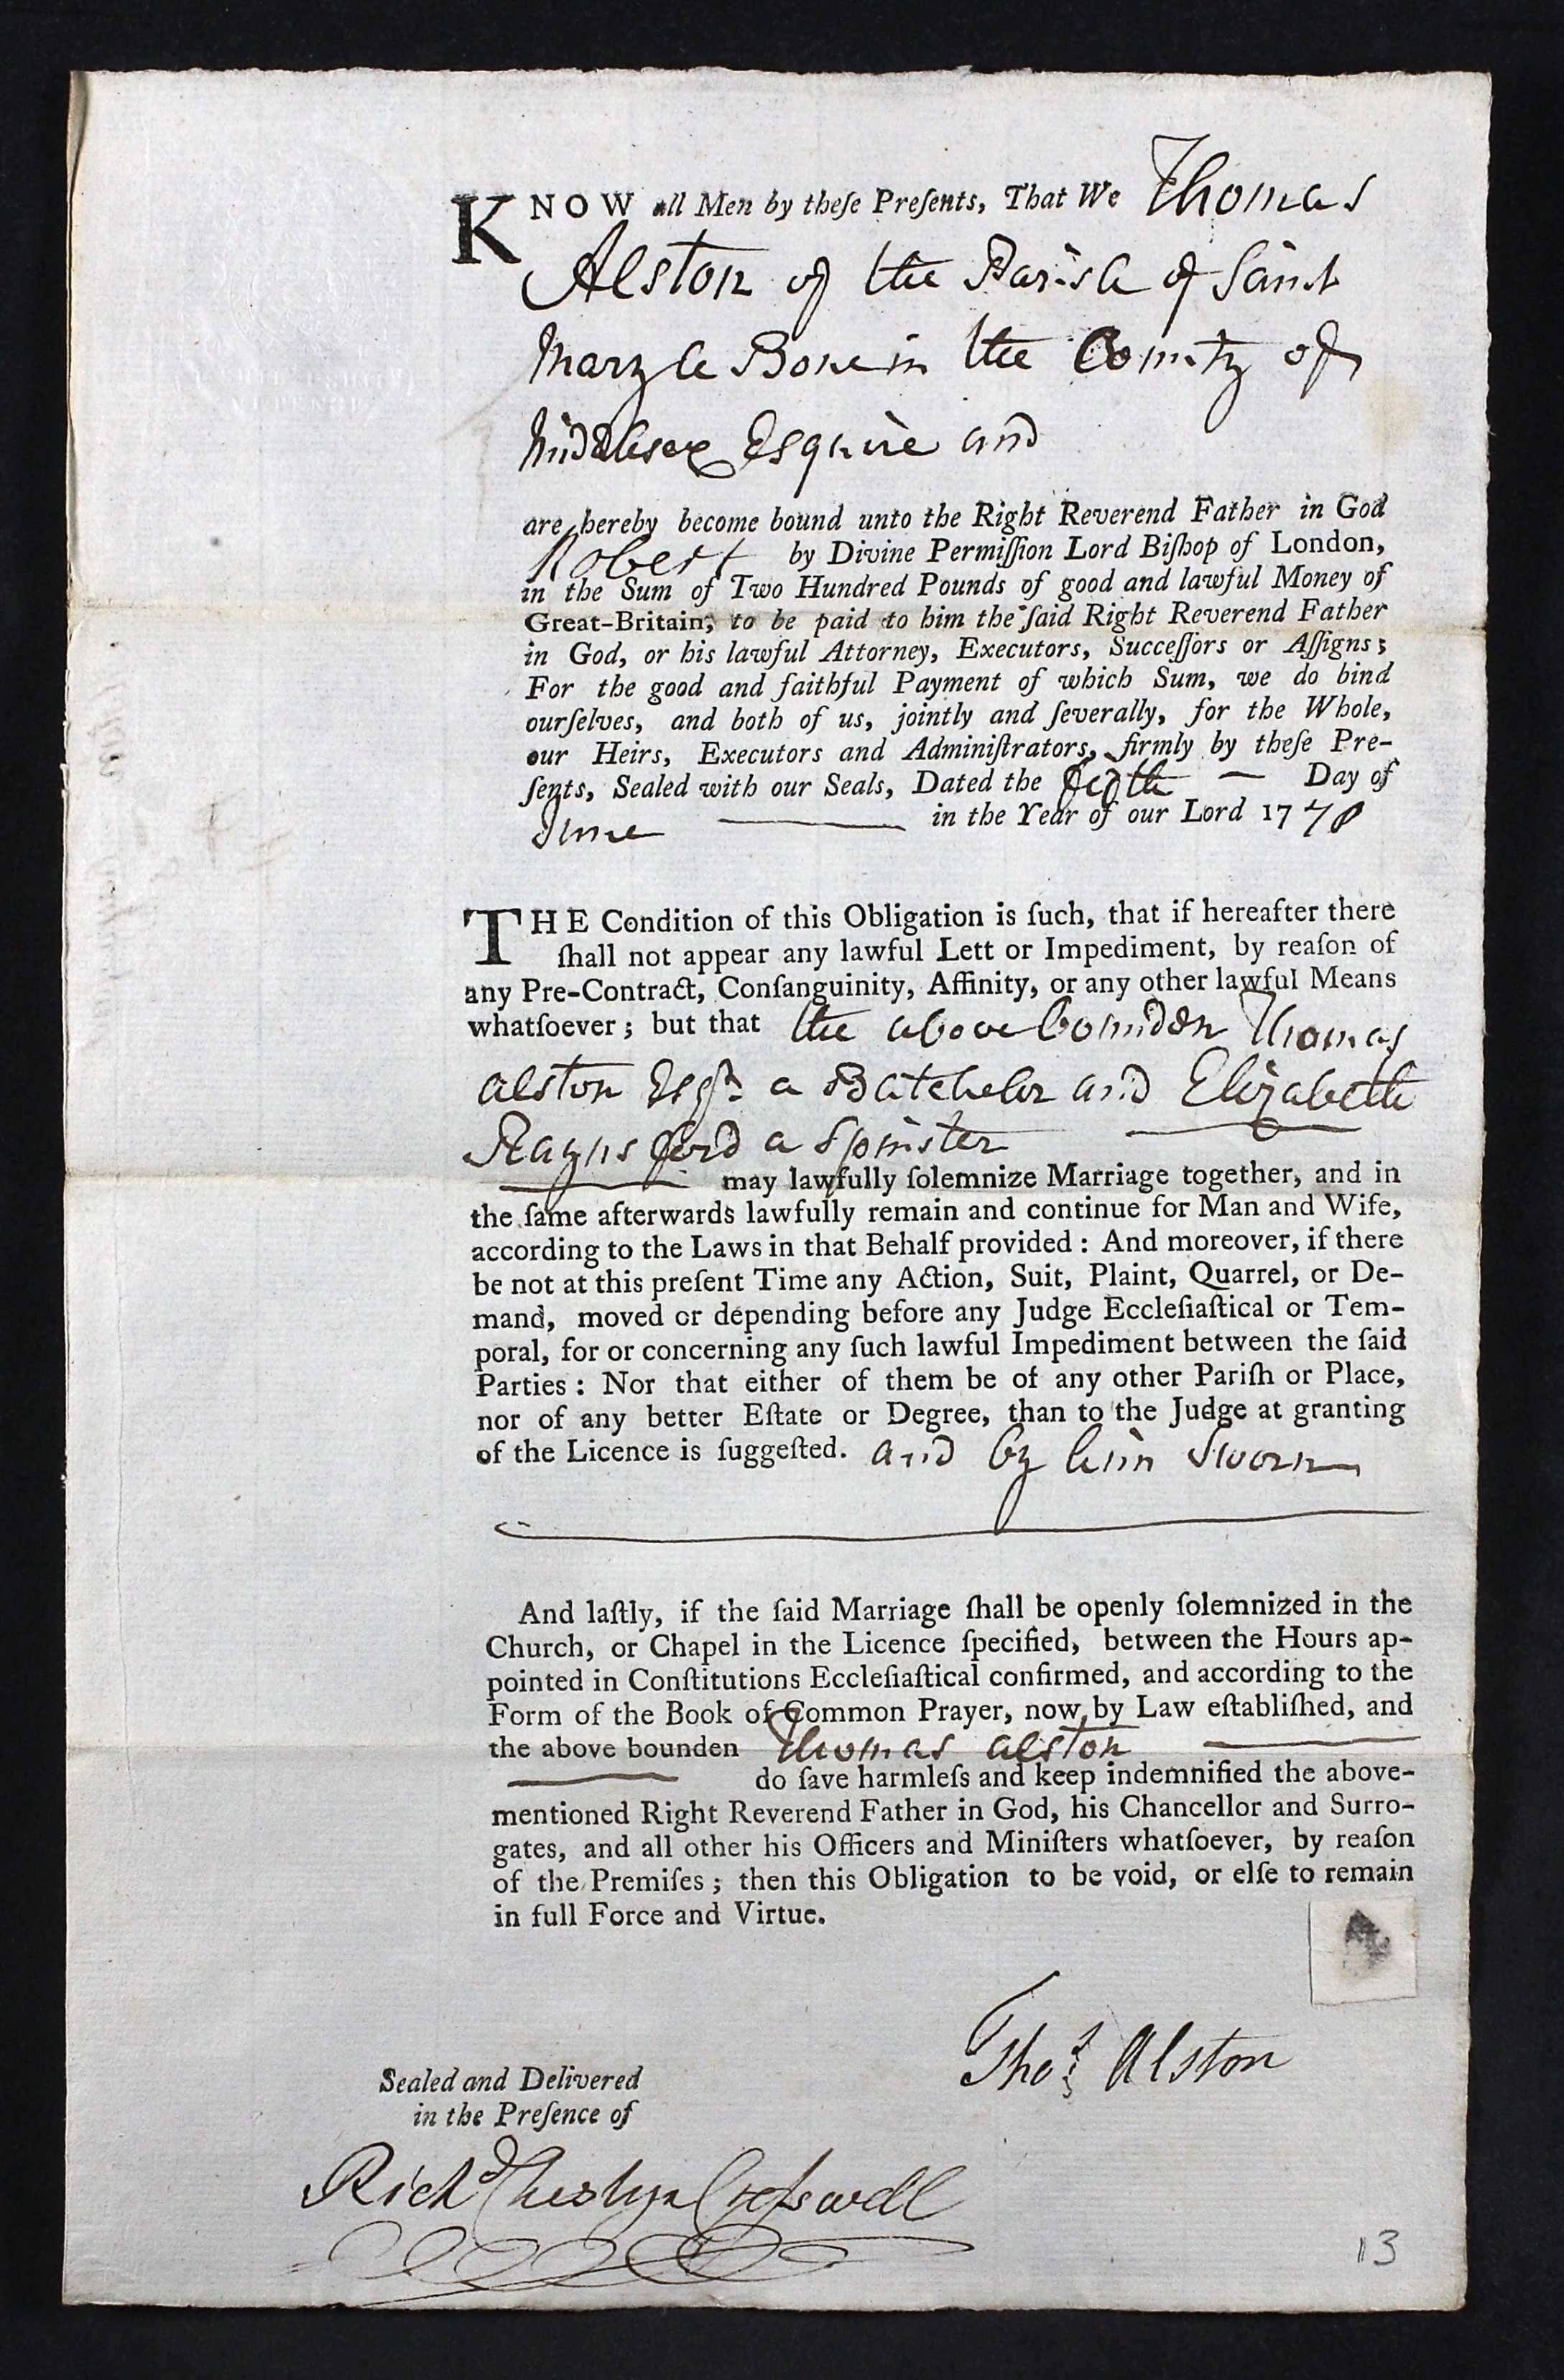 KNOW all Men by theſe Preſents, That We Thomas
Alston of the Parish of Saint
Mary le Bone in the County of
Middlesex Esquire and
are hereby become bound unto the Right Reverend Father in God
Robert by Divine Permiſſion Lord Biſhop of London,
in the Sum of Two Hundred Pounds of good and lawful Money of
Great-Britain; to be paid to him the ſaid Right Reverend Father
in God, or his lawful Attorney, Executors, Succeſſors or Aſſigns;
For the good and faithful Payment of which Sum, we do bind
ourſelves, and both of us, jointly and ſeverally, for the Whole,
our Heirs, Executors and Adminiſtrators, firmly by theſe Pre-
ſents, Sealed with our Seals, Dated the fifth — Day of
June —— in the Year of our Lord 1778
THE Condition of this Obligation is ſuch, that if hereafter there
ſhall not appear any lawful Lett or Impediment, by reaſon of
any Pre-Contract, Conſanguinity, Affinity, or any other lawful Means
whatſoever; but that the above bounden Thomas
Alston Esqr. a Batchelor and Elizabeth
Raynsford a Spinster
may lawfully ſolemnize Marriage together, and in
the ſame afterwards lawfully remain and continue for Man and Wife,
according to the Laws in that Behalf provided: And moreover, if there
be not at this preſent Time any Action, Suit, Plaint, Quarrel, or De-
mand, moved or depending before any Judge Eccleſiaſtical or Tem-
poral, for or concerning any ſuch lawful Impediment between the ſaid
Parties: Nor that either of them be of any other Pariſh or Place,
nor of any better Eſtate or Degree, than to the Judge at granting
of the Licence is ſuggeſted. and by him Sworn
And laſtly, if the ſaid Marriage ſhall be openly ſolemnized in the
Church, or Chapel in the Licence ſpecified, between the Hours ap-
pointed in Conſtitutions Eccleſiaſtical confirmed, and according to the
Form of the Book of Common Prayer, now by Law eſtabliſhed, and
the above bounden Thomas Alston
do ſave harmleſs and keep indemnified the above-
mentioned Right Reverend Father in God, his Chancellor and Surro-
gates, and all other his Officers and Miniſters whatſoever, by reaſon
of the Premiſes; then this Obligation to be void, or elſe to remain
in full Force and Virtue.
Thos. Alston
Sealed and Delivered
in the Preſence of
Richd Cheslyn Creſswell
113